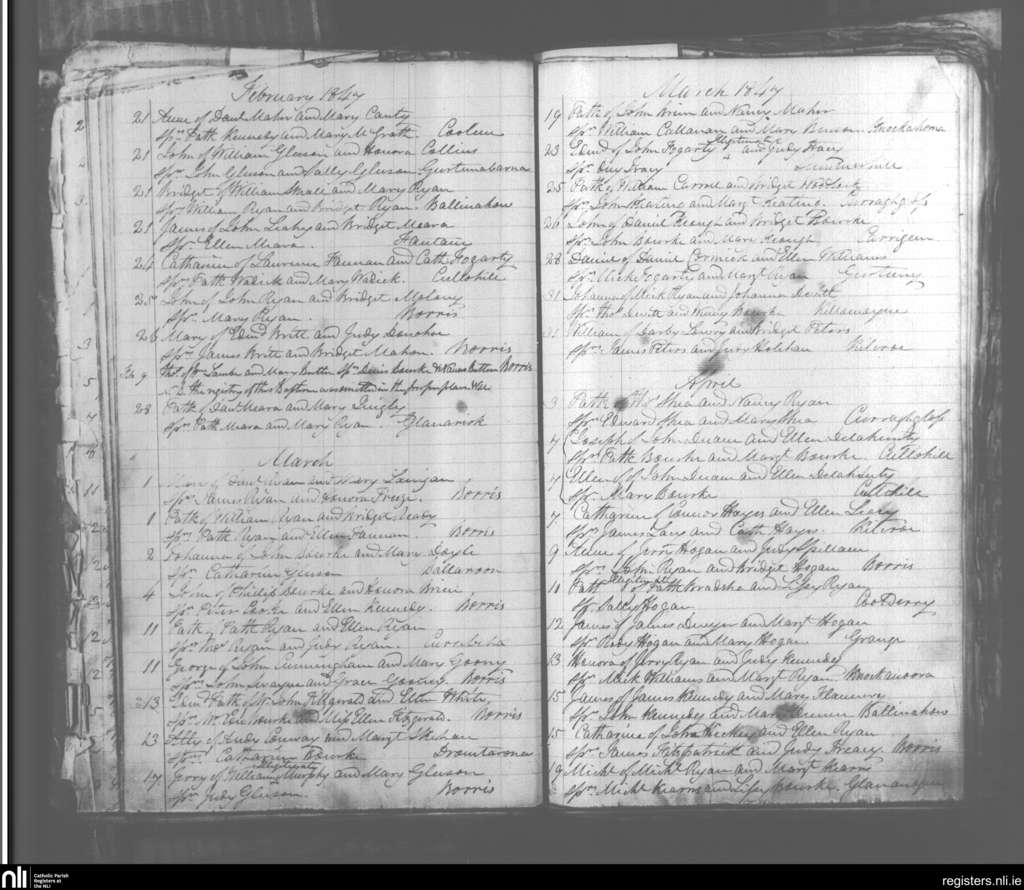 February 1847
21 Anne of Danl Maher and Mary Canty
Spr Patk Kennedy and Mary McGrath Cooleen
21 John of William Gleeson and Honora Collins
Spr John Gleeson and Sally Gleeson Gurtnnabarna
21 Bridget of William Small and Mary Ryan
Spr William Ryan and Bridget Ryan Ballinahow
21 James of John Leahy and Bridget Meara
Spr Ellen Meara. Fantain
24 Catharine of Laurence Hannan and Cath Fogarty
Spr Patk and Mary Cullohill
25 John of John Ryan and Bridget Molony
Spr Mary Ryan. Borris
26 Mary of Edmd Britt and Judy Donohoe
Spr James Britt and Bridget Mahon. Borris
Feb 9 Thos of Wm and Mary Butler Sprs Denis Bourke & Butler Borris
The registry of this Baptism was omitted in the proper place
28 Patk of Danl Meara and Mary Quigley
Spr Patk Meara and Mary Ryan.
March
1 of Danl Ryan and Mary Lanigan
Spr James Ryan and Honora Borris
1 Patk of William Ryan and Bridget Ready
Spr Patk Ryan and Ellen Hannan. Borris
2 Johanna of John Bourke and Mary Doyle
Spr Catharine Gleeson Ballaroon
4 John of Philip Bourke and Honora Brien
Spr Peter and Ellen Kennedy. Borris
11 Patk of Patk Ryan and Ellen Ryan
Spr Thos Ryan and Judy Ryan.
11 George of John Cunningham and Mary
Spr John and Grace Borris
13 Edmd Patk of Mr John Fitzgerald and Ellen White
Spr Mr Bourke and Miss Ellen Fitzgerald. Borris
13 Atty of Andy Conway and Margt Skehan
Spr Catharine Bourke Dromtarsna
Illegitimate
17 Jerry of William Murphy and Mary Gleeson
Spr Judy Gleeson. Borris
March 1847
19 Patk of John Brien and Nancy Maher
Spr William Callanan and Mary Knockahona
Illegitimate
23 Edmd of John Fogarty and Judy Tracy
Spr Tracy
25 Patk of William Carroll and Bridget
Spr John Keating and Margt Keating. Curraghglass
26 John of Daniel Keough and Bridget Bourke
Spr John Bourke and Mary Keough
28 Daniel of Daniel Cormick and Ellen Williams
Spr Mick Fogarty and Margt Ryan Gurteeny
31 Johanna of Mick Ryan and Johanna Dewitt
Spr Thos Dewitt and Bourke Killamoyne
31 William of Darby Lowry and Bridget Peters
Spr James Peters and Judy Holohan Kilroe
April
3 Patk of Thos Shea and Nancy Ryan
Spr Edward Shea and Mary Shea Curraghglass
7 Joseph of John Dwan and Ellen Delahunty
Spr Patk Bourke and Margt Bourke. Cullohill
7 Ellen of John Dwan and Ellen Delahunty
Spr Mary Bourke Cullohill
7 Catharine of Connor Hayes and Ellen
Spr James and Cath Hayes. Kilroe
9 of Jerry Hogan and Judy Spillane
Spr John Ryan and Bridget Hogan Borris
Illegitimate
11 Patk of Patk Bradsha and Ryan
Spr Sally Hogan Coolderry
12 James of James Dwyer and Margt Hogan
Spr Hogan and Mary Hogan Grange
13 Honora of Jerry Ryan and Judy Kennedy
Spr Mick Williams and Margt Ryan. Knockanoora
15 James of James Kennedy and Mary Flannery
Spr John Kennedy and Mary Ballinahow
15 Catharine of John Hickey and Ellen Ryan
Spr James Fitzpatrick and Judy Treacy. Borris
19 Michl of Michl Ryan and Margt Kearns
Spr Michl Kearns and Bourke.
nli
Catholic Parish
Registers at
the NLI
registers.nli.ie